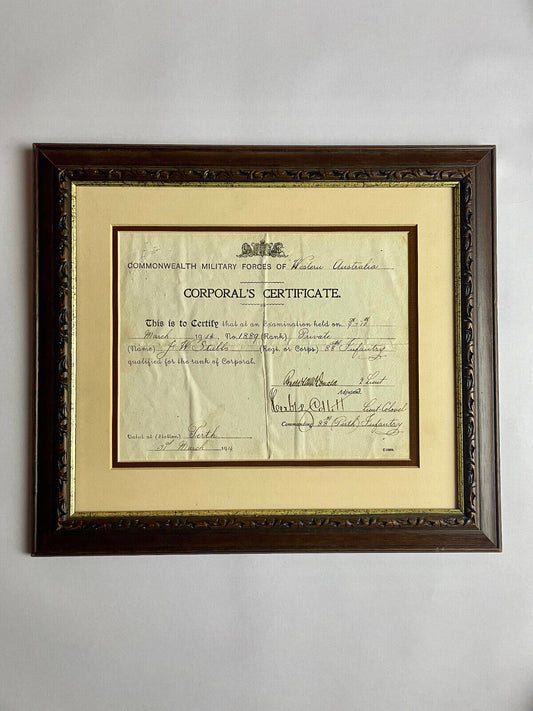 COMMONWEALTH MILITARY FORCES OF Western Australia
CORPORAL'S CERTIFICATE.
This is to Certify that at an Examination held on
March 1914, No. 1889 (Rank) Private
(Name) J. W. Stubbs (Regt. or Corps) 88th Infantry
qualified for the rank of Corporal.
2 Lieut
Adjutant
Lieut Colonel
Commanding 88th (Perth) Infantry
Dated at (Station) Perth
31st March 191